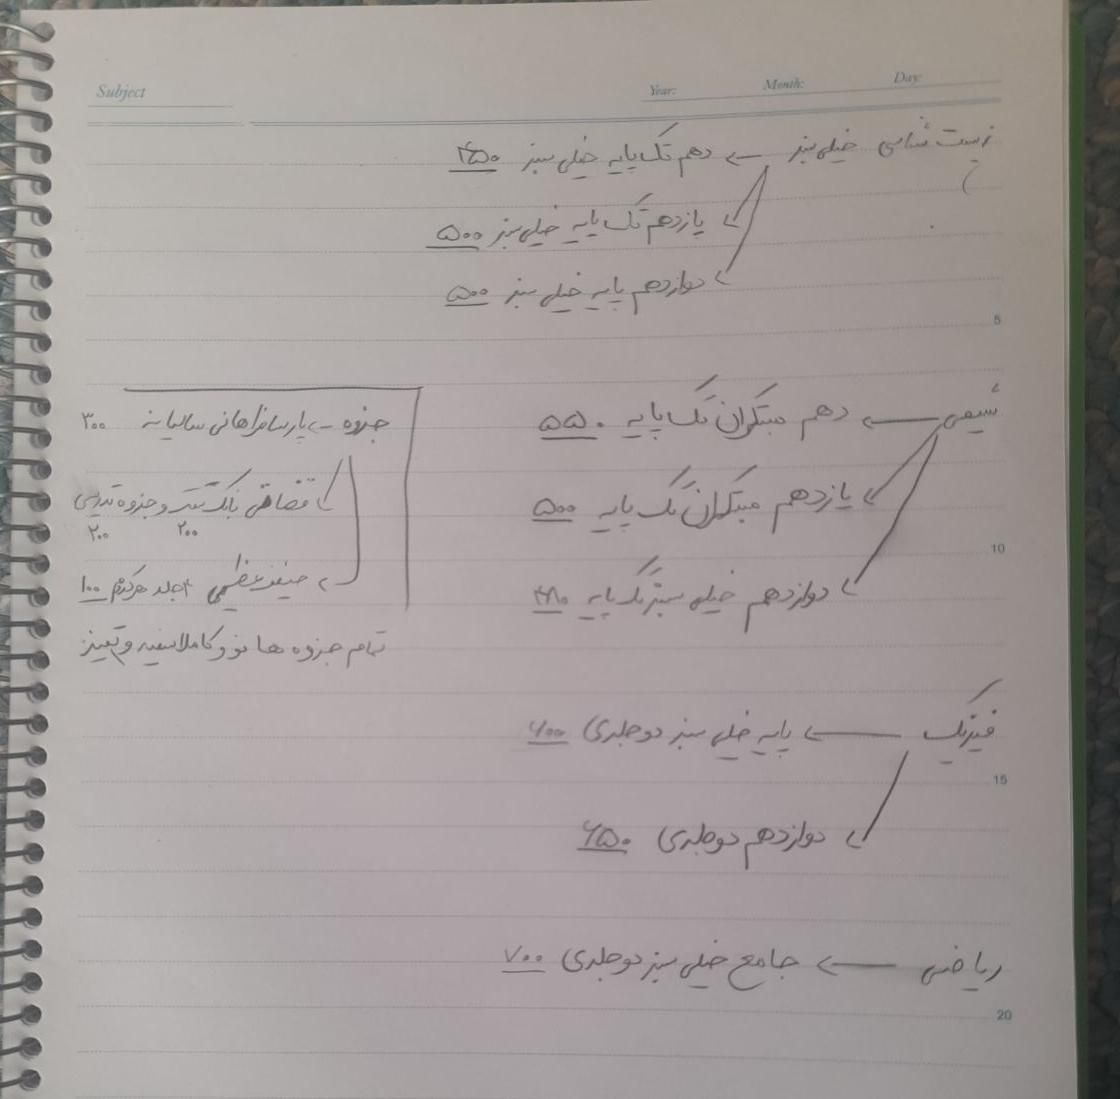 Subject Year: Month: Day:
زیست شناسی خیلی سبز ← دهم تک پایه خیلی سبز ۴۵۰
یازدهم تک پایه خیلی سبز ۵۰۰
دوازدهم پایه خیلی سبز ۵۰۰
5
شیمی ← دهم مبتکران تک پایه ۵۵۰
یازدهم مبتکران تک پایه ۵۰۰
10
دوازدهم خیلی سبز تک پایه ۴۸۰
جزوه ← پارسا فراهانی سالیانه ۳۰۰
قضاقی بانک تست و جزوه تدریس
۲۰۰ ۲۰۰
عظیمی ۴ جلد هرکدوم ۱۰۰
تمام جزوه ها نو و کاملا سفید و تمیز
فیزیک ← پایه خیلی سبز دوجلدی ۶۰۰
15
دوازدهم دوجلدی ۶۵۰
ریاضی ← جامع خیلی سبز دوجلدی ۷۰۰
20